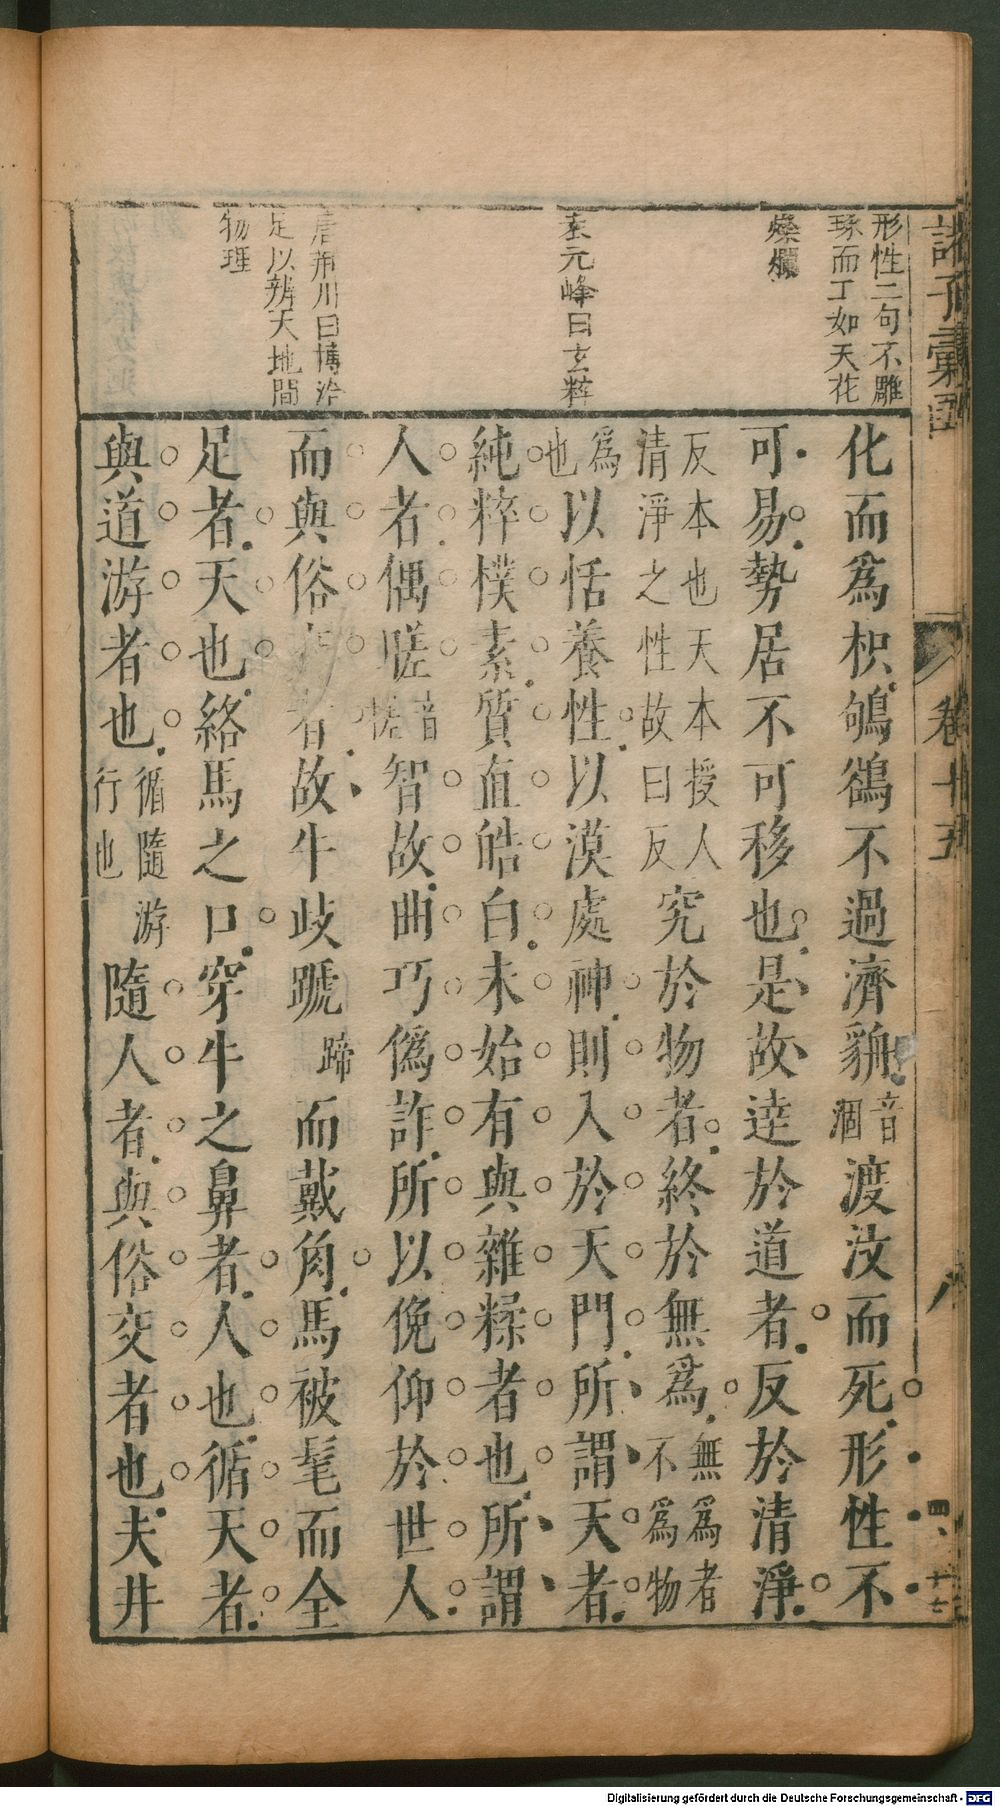 形性二句不雕
琢而工如天花
燦爛
袁元峰曰玄粹
唐荆川曰博洽
足以辨天地間
物理
化而爲枳鴝鵒不過濟貈音涸渡汶而死形性不
可易勢居不可移也是故逹於道者反於清淨
反本也天本授人清淨之性故曰反究於物者終於無爲無爲者不爲物
爲也以恬養性以漠處神則入於天門所謂天者
純粹樸素質直皓白未始有與雜糅者也所謂
人者偶䁟音槎智故曲巧僞詐所以俛仰於世人
而與俗者故牛歧蹏蹄而戴角馬被髦而全
足者天也絡馬之口穿牛之鼻者人也循天者
與道游者也循隨游行也隨人者與俗交者也夫井
諸子彙
卷十五
Digitalisierung gefördert durch die Deutsche Forschungsgemeinschaft - DFG